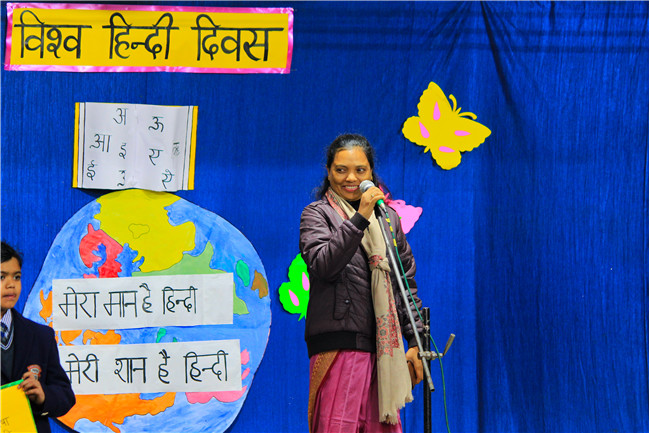 विश्व हिन्दी दिवस
अ ऊ
आ इ
ई
मेरा मान है हिन्दी
मेरी शान है हिन्दी